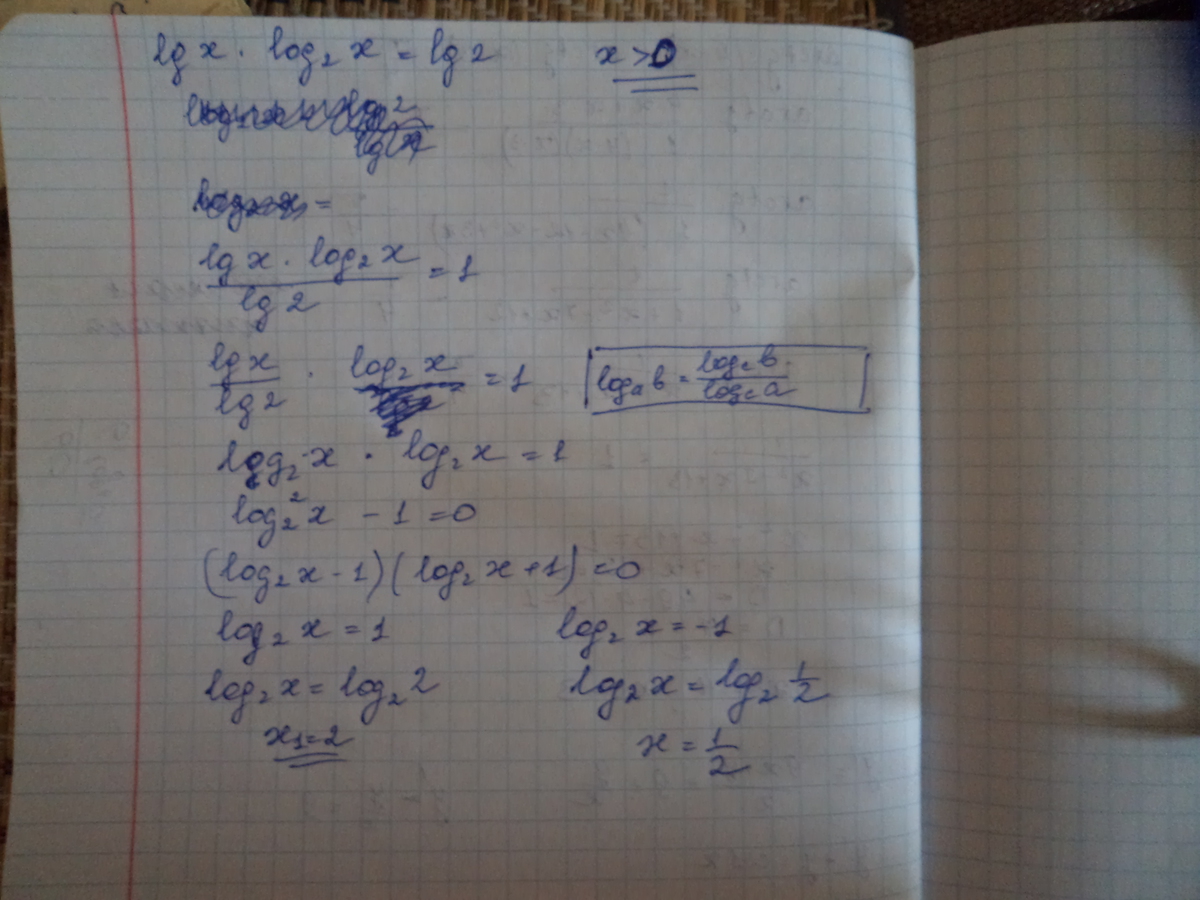 lg x · log₂ x = lg 2 x > 0
log₂ x =
lg x · log₂ x / lg 2 = 1
lg x / lg 2 · log₂ x = 1 logₐ b = log_c b / log_c a
log₂ x · log₂ x = 1
log₂² x - 1 = 0
(log₂ x - 1)(log₂ x + 1) = 0
log₂ x = 1 log₂ x = -1
log₂ x = log₂ 2 log₂ x = log₂ 1/2
x₁ = 2 x = 1/2